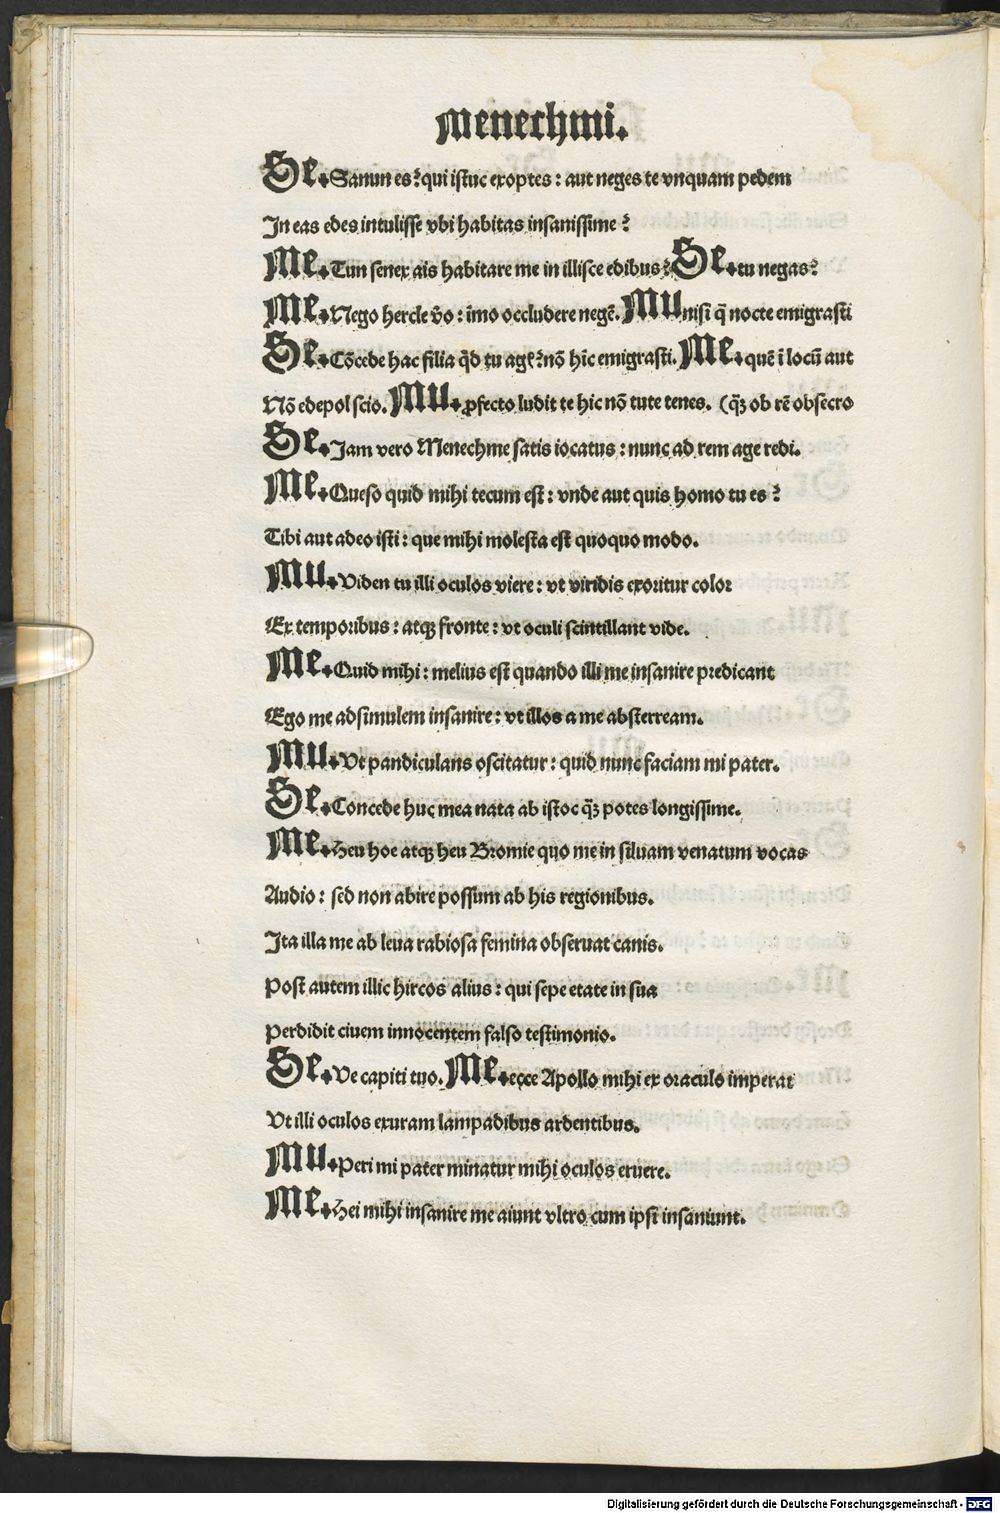 Menechmi.
Se. Sanun es? qui istuc exoptes: aut neges te vnquam pedem
In eas edes intulisse vbi habitas insanissime?
Me. Tun senex ais habitare me in illisce edibus? Se. tu negas?
Me. Nego hercle v̄o: imo occludere negē. Mu nisi q̄ nocte emigrasti
Se. Cōcede hac filia q̄d tu agꝭ? nō hic emigrasti. Me. quē ī locū aut
Nō edepol scio. Mu. ꝓfecto ludit te hic nō tute tenes. (q̄ꝫ ob rē obsecro
Se. Jam vero Menechme satis iocatus: nunc ad rem age redi.
Me. Queso quid mihi tecum est: vnde aut quis homo tu es?
Tibi aut adeo isti: que mihi molesta est quoquo modo.
Mu. Viden tu illi oculos viere: vt viridis exoritur color
Ex temporibus: atqꝫ fronte: vt oculi scintillant vide.
Me. Quid mihi: melius est quando illi me insanire predicant
Ego me adsimulem insanire: vt illos a me absterream.
Mu. Vt pandiculans oscitatur: quid nunc faciam mi pater.
Se. Concede huc mea nata ab istoc q̄ꝫ potes longissime.
Me. Heu hoe atqꝫ heu Bromie quo me in siluam venatum vocas
Audio: sed non abire possum ab his regionibus.
Ita illa me ab leua rabiosa femina obseruat canis.
Post autem illic hircos alius: qui sepe etate in sua
Perdidit ciuem innocentem falso testimonio.
Se. Ve capiti tuo. Me. ecce Apollo mihi ex oraculo imperat
Vt illi oculos exuram lampadibus ardentibus.
Mu. Peri mi pater minatur mihi oculos eruere.
Me. Hei mihi insanire me aiunt vltro cum ipsi insaniunt.
Digitalisierung gefördert durch die Deutsche Forschungsgemeinschaft - DFG